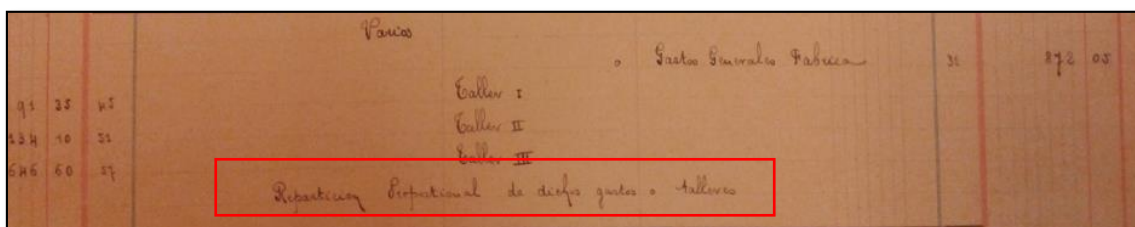 Varios
a Gastos Generales Fabrica 31 872 05
91 35 45 Taller I
134 10 51 Taller II
646 60 57 Taller III
Repartición Proporcional de dichos gastos a talleres